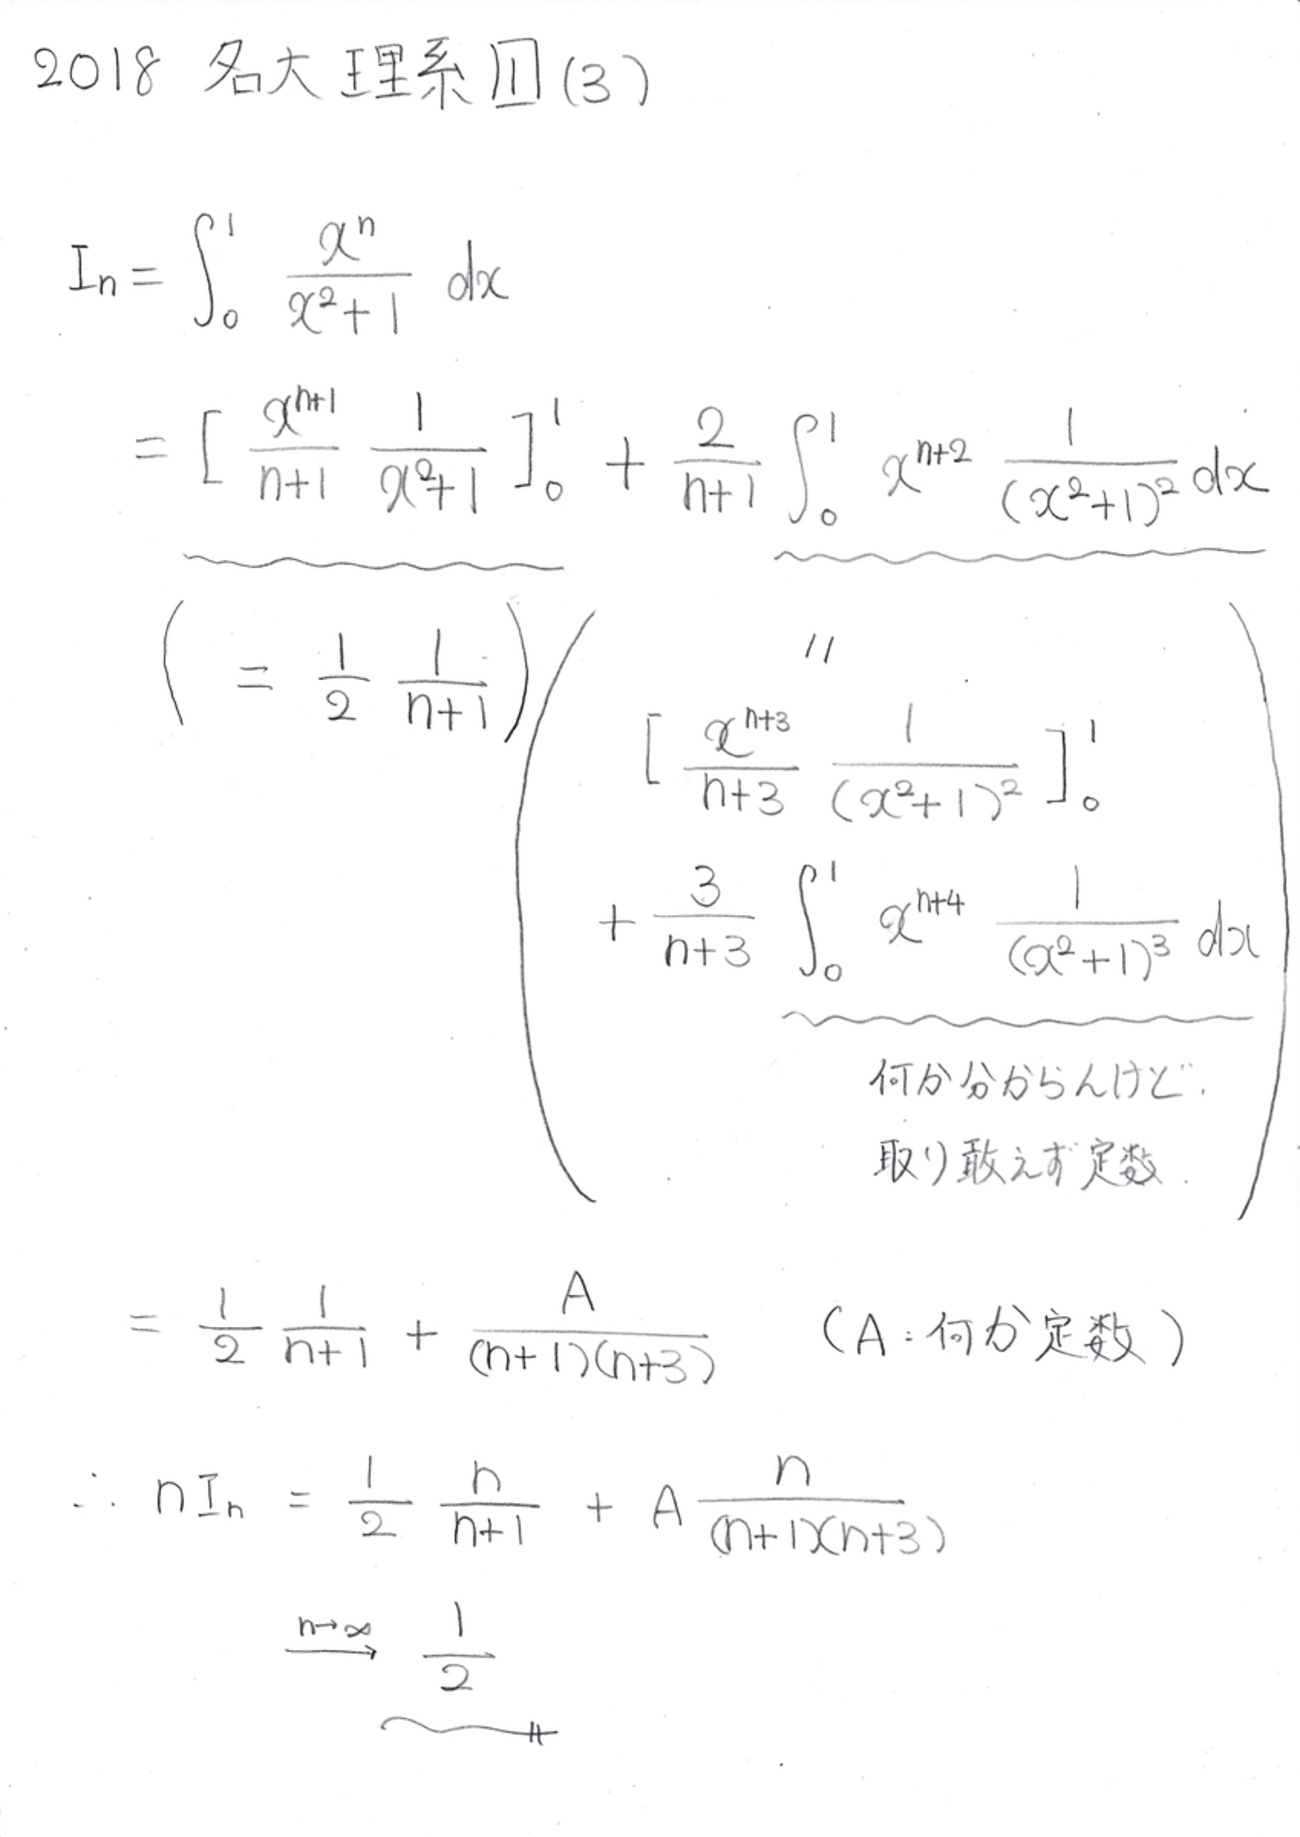 2018 名大理系 1 (3)
I_n = ∫_0^1 x^n/(x^2+1) dx
= [ x^{n+1}/(n+1) 1/(x^2+1) ]_0^1 + 2/(n+1) ∫_0^1 x^{n+2} 1/(x^2+1)^2 dx
( = 1/2 1/(n+1) )
〃
[ x^{n+3}/(n+3) 1/(x^2+1)^2 ]_0^1
+ 3/(n+3) ∫_0^1 x^{n+4} 1/(x^2+1)^3 dx
何か分からんけど、
取り敢えず定数.
= 1/2 1/(n+1) + A/((n+1)(n+3)) (A:何か定数)
∴ nI_n = 1/2 n/(n+1) + A n/((n+1)(n+3))
n→∞ → 1/2